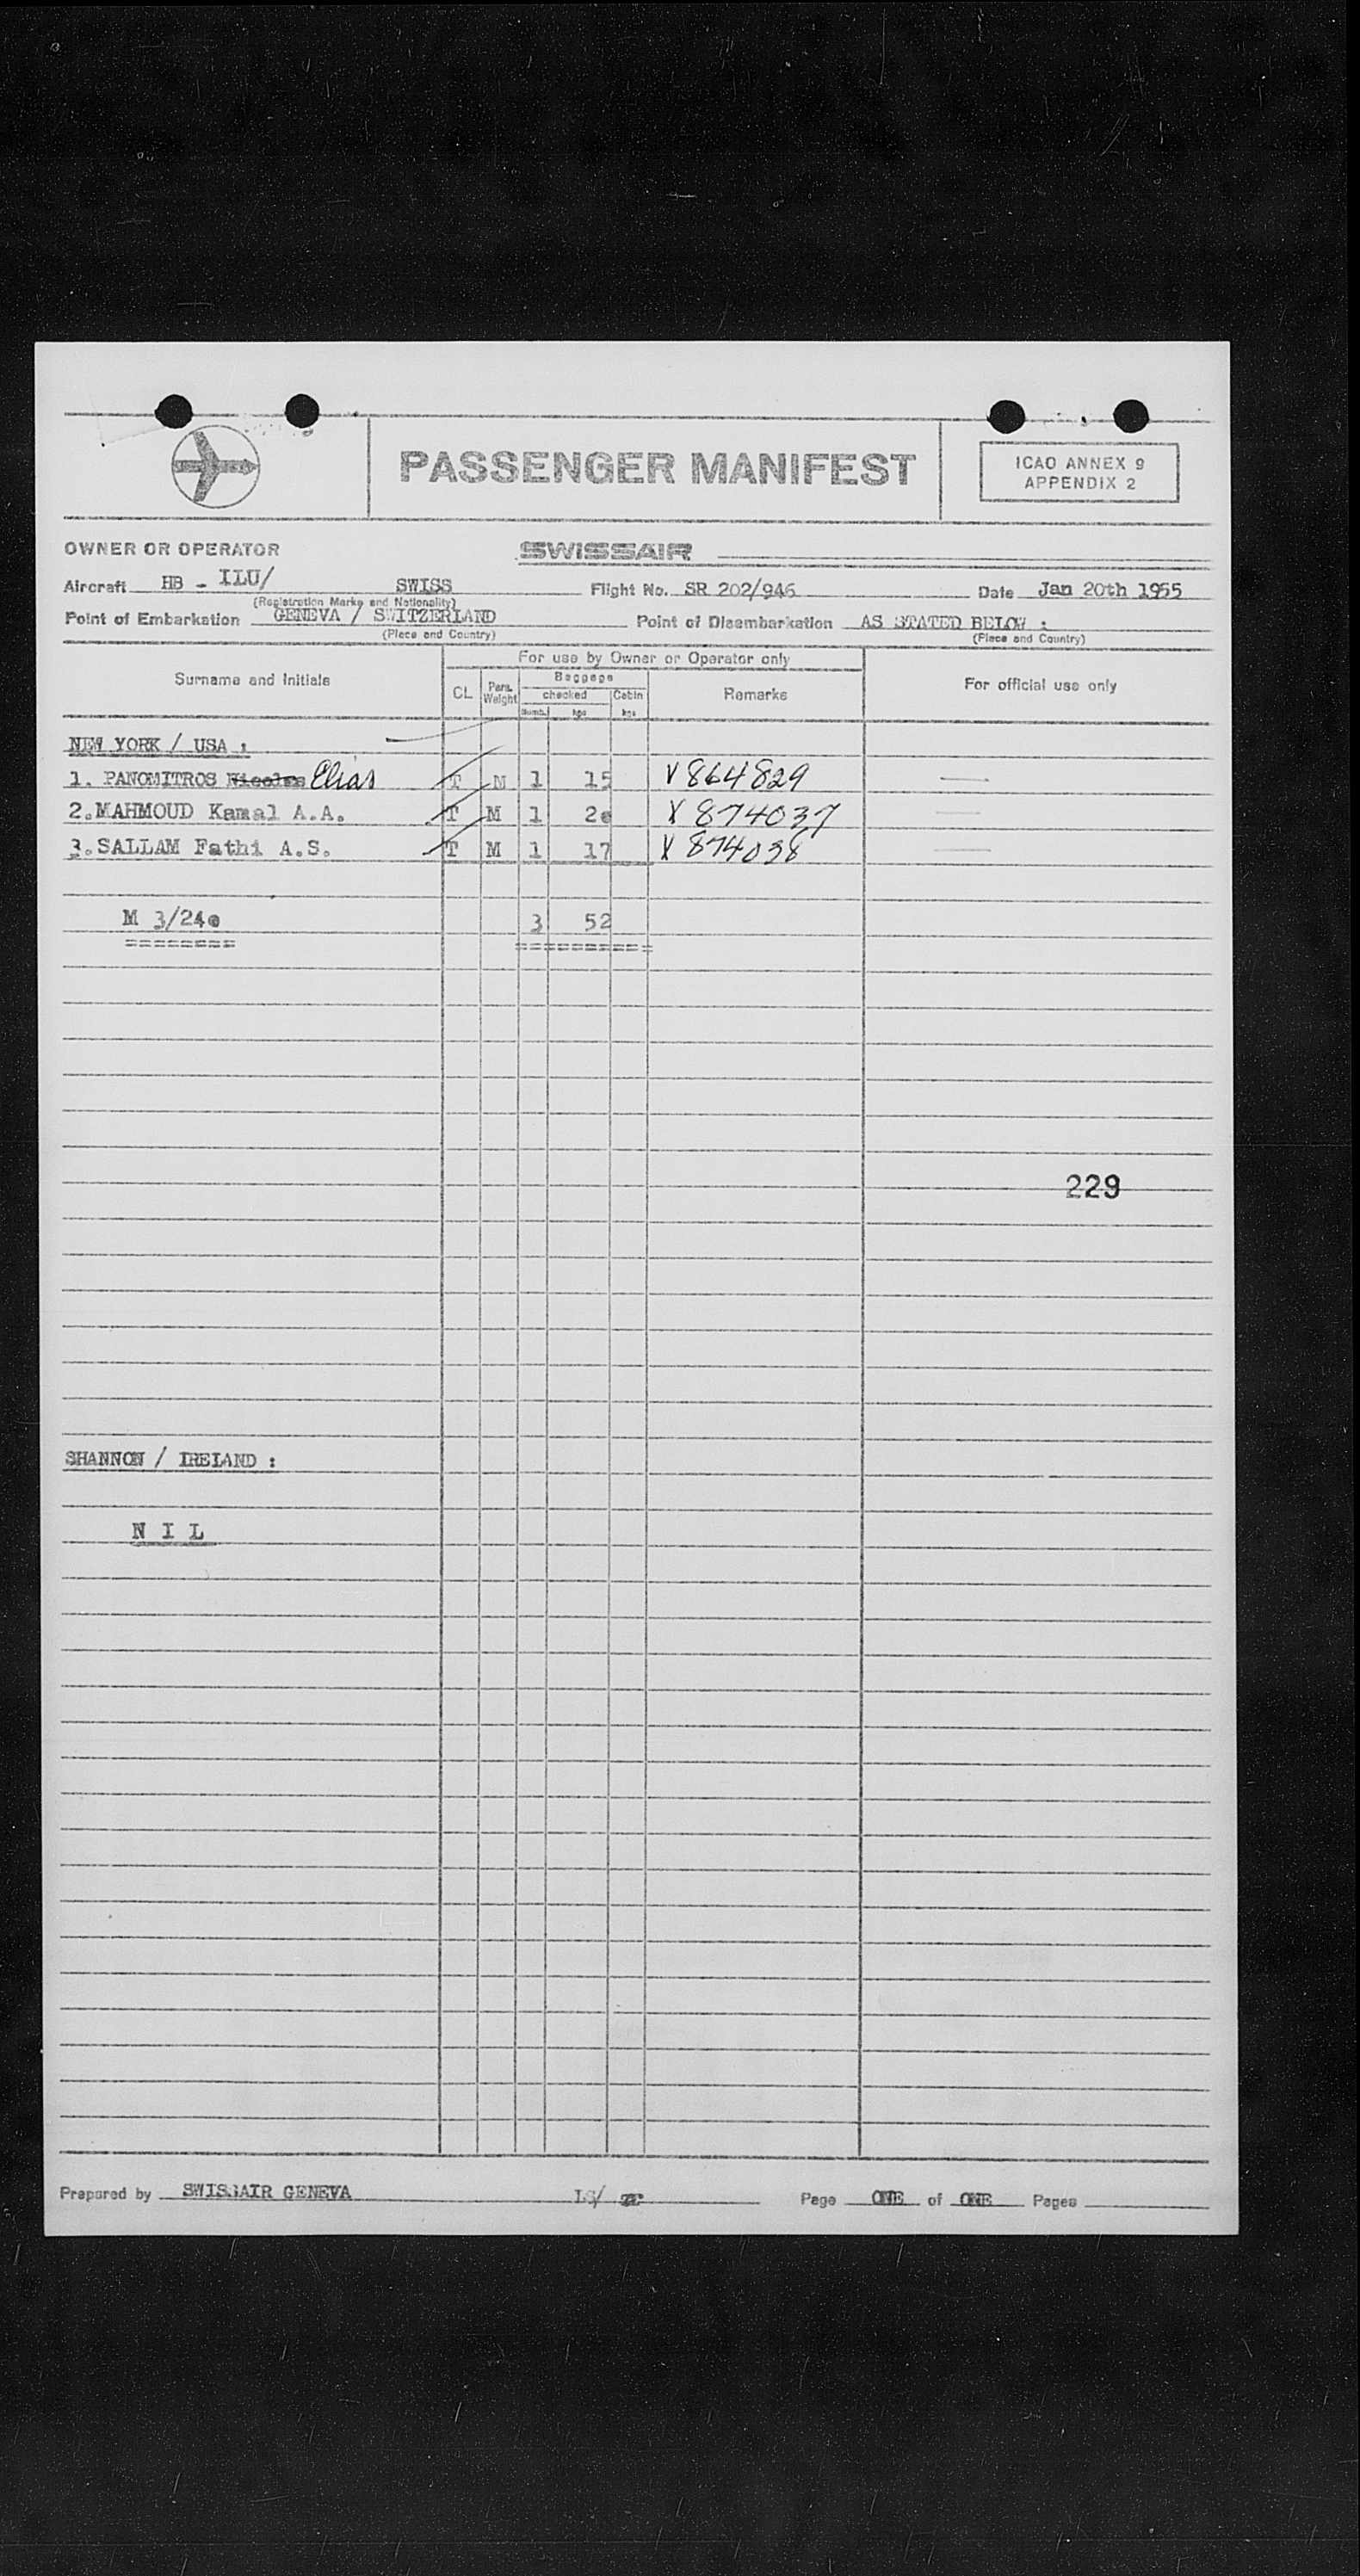 PASSENGER MANIFEST
ICAO ANNEX 9
APPENDIX 2
OWNER OR OPERATOR SWISSAIR
Aircraft HB - ILU/ SWISS Flight No. SR 202/946 Date Jan 20th 1955
(Registration Marks and Nationality)
Point of Embarkation GENEVA / SWITZERLAND Point of Disembarkation AS STATED BELOW :
(Place and Country) (Place and Country)
For use by Owner or Operator only
Surname and Initials CL Pass. Weight Baggage checked Cabin Remarks For official use only
Numb. kgs kgs
NEW YORK / USA :
1. PANOMITROS Nicolas Elias T M 1 15 V 864829
2.MAHMOUD Kamal A.A. T M 1 2o V 874037
3.SALLAM Fathi A.S. T M 1 17 V 874038
M 3/24o 3 52
======== ==========
229
SHANNON / IRELAND :
N I L
Prepared by SWISSAIR GENEVA LS/ Page ONE of ONE Pages